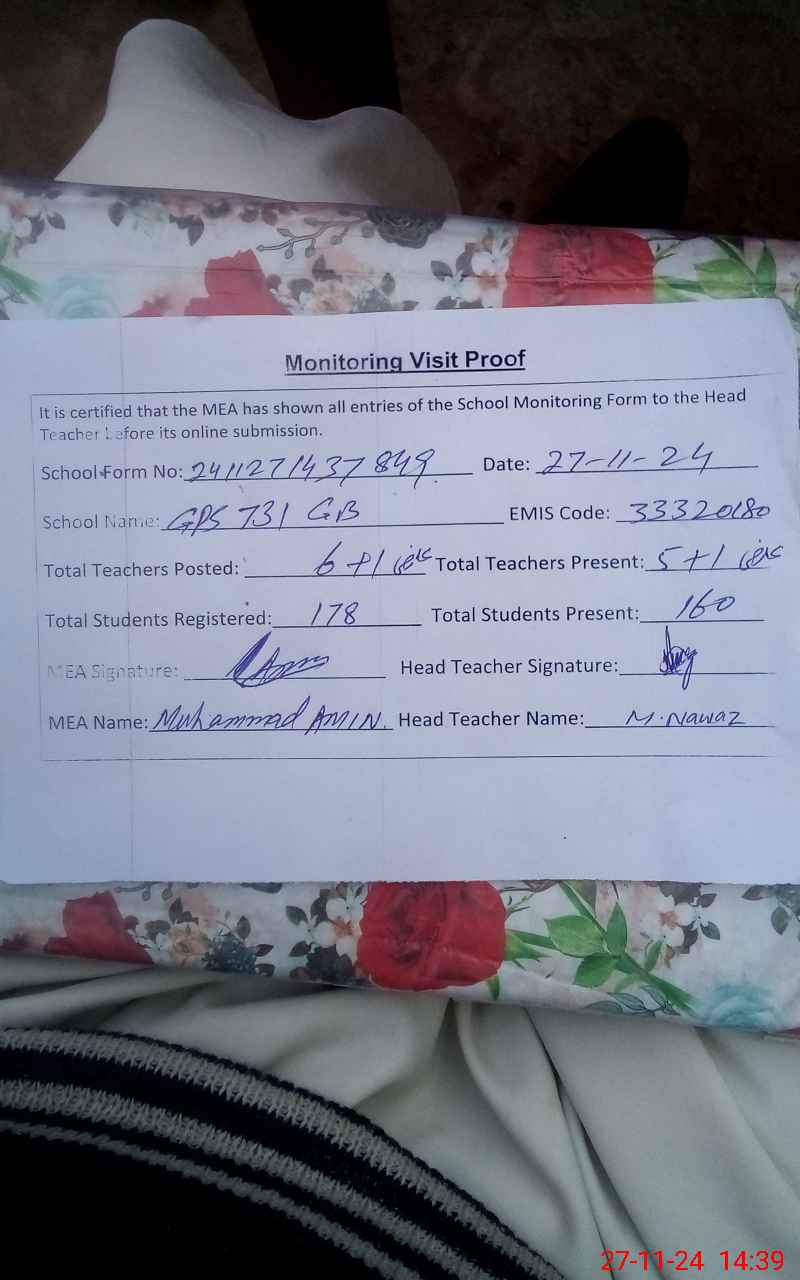 Monitoring Visit Proof
It is certified that the MEA has shown all entries of the School Monitoring Form to the Head
Teacher before its online submission.
School Form No: 2411271437849 Date: 27-11-24
School Name: GPS 731 GB EMIS Code: 33320180
Total Teachers Posted: 6+1 Total Teachers Present: 5+1
Total Students Registered: 178 Total Students Present: 160
MEA Signature: Head Teacher Signature:
MEA Name: Muhammad AMIN. Head Teacher Name: M. Nawaz
27-11-24 14:39